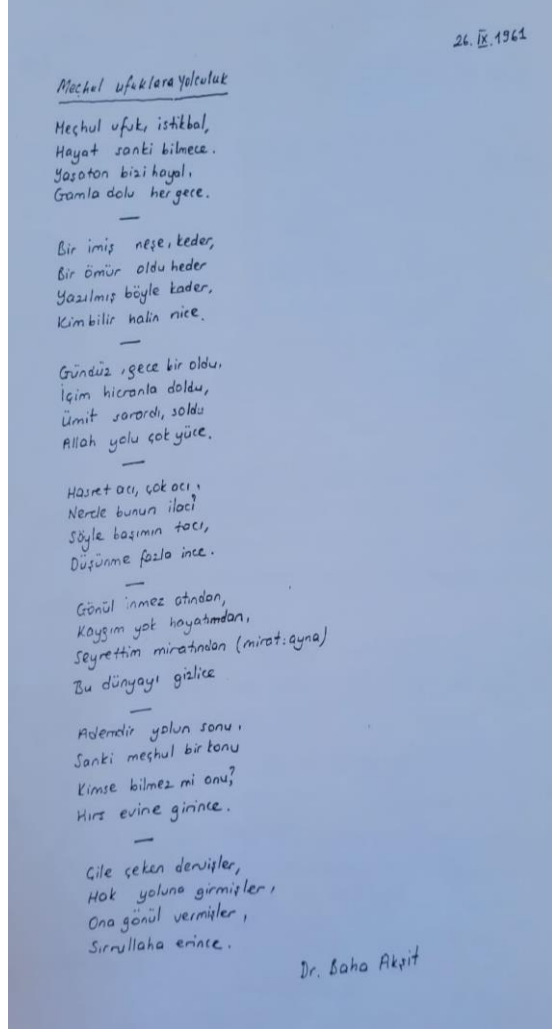 26.IX.1961
Meçhul ufuklara yolculuk
Meçhul ufuk, istikbal,
Hayat sanki bilmece.
Yaşatan bizi hayal,
Gamla dolu her gece.
Bir imiş neşe, keder,
Bir ömür oldu heder
Yazılmış böyle kader,
Kimbilir halin nice.
Gündüz, gece bir oldu,
İçim hicranla doldu,
Ümit sarardı, soldu
Allah yolu çok yüce.
Hasret acı, çok acı,
Nerde bunun ilacı?
Söyle başımın tacı,
Düşünme fazla ince.
Gönül inmez atından,
Kaygım yok hayatımdan,
Seyrettim miratından (mirat:ayna)
Bu dünyayı gizlice
Ademdir yolun sonu,
Sanki meçhul bir konu
Kimse bilmez mi onu?
Hırs evine girince.
Çile çeken dervişler,
Hak yoluna girmişler,
Ona gönül vermişler,
Sırrullaha erince.
Dr. Baha Akşit